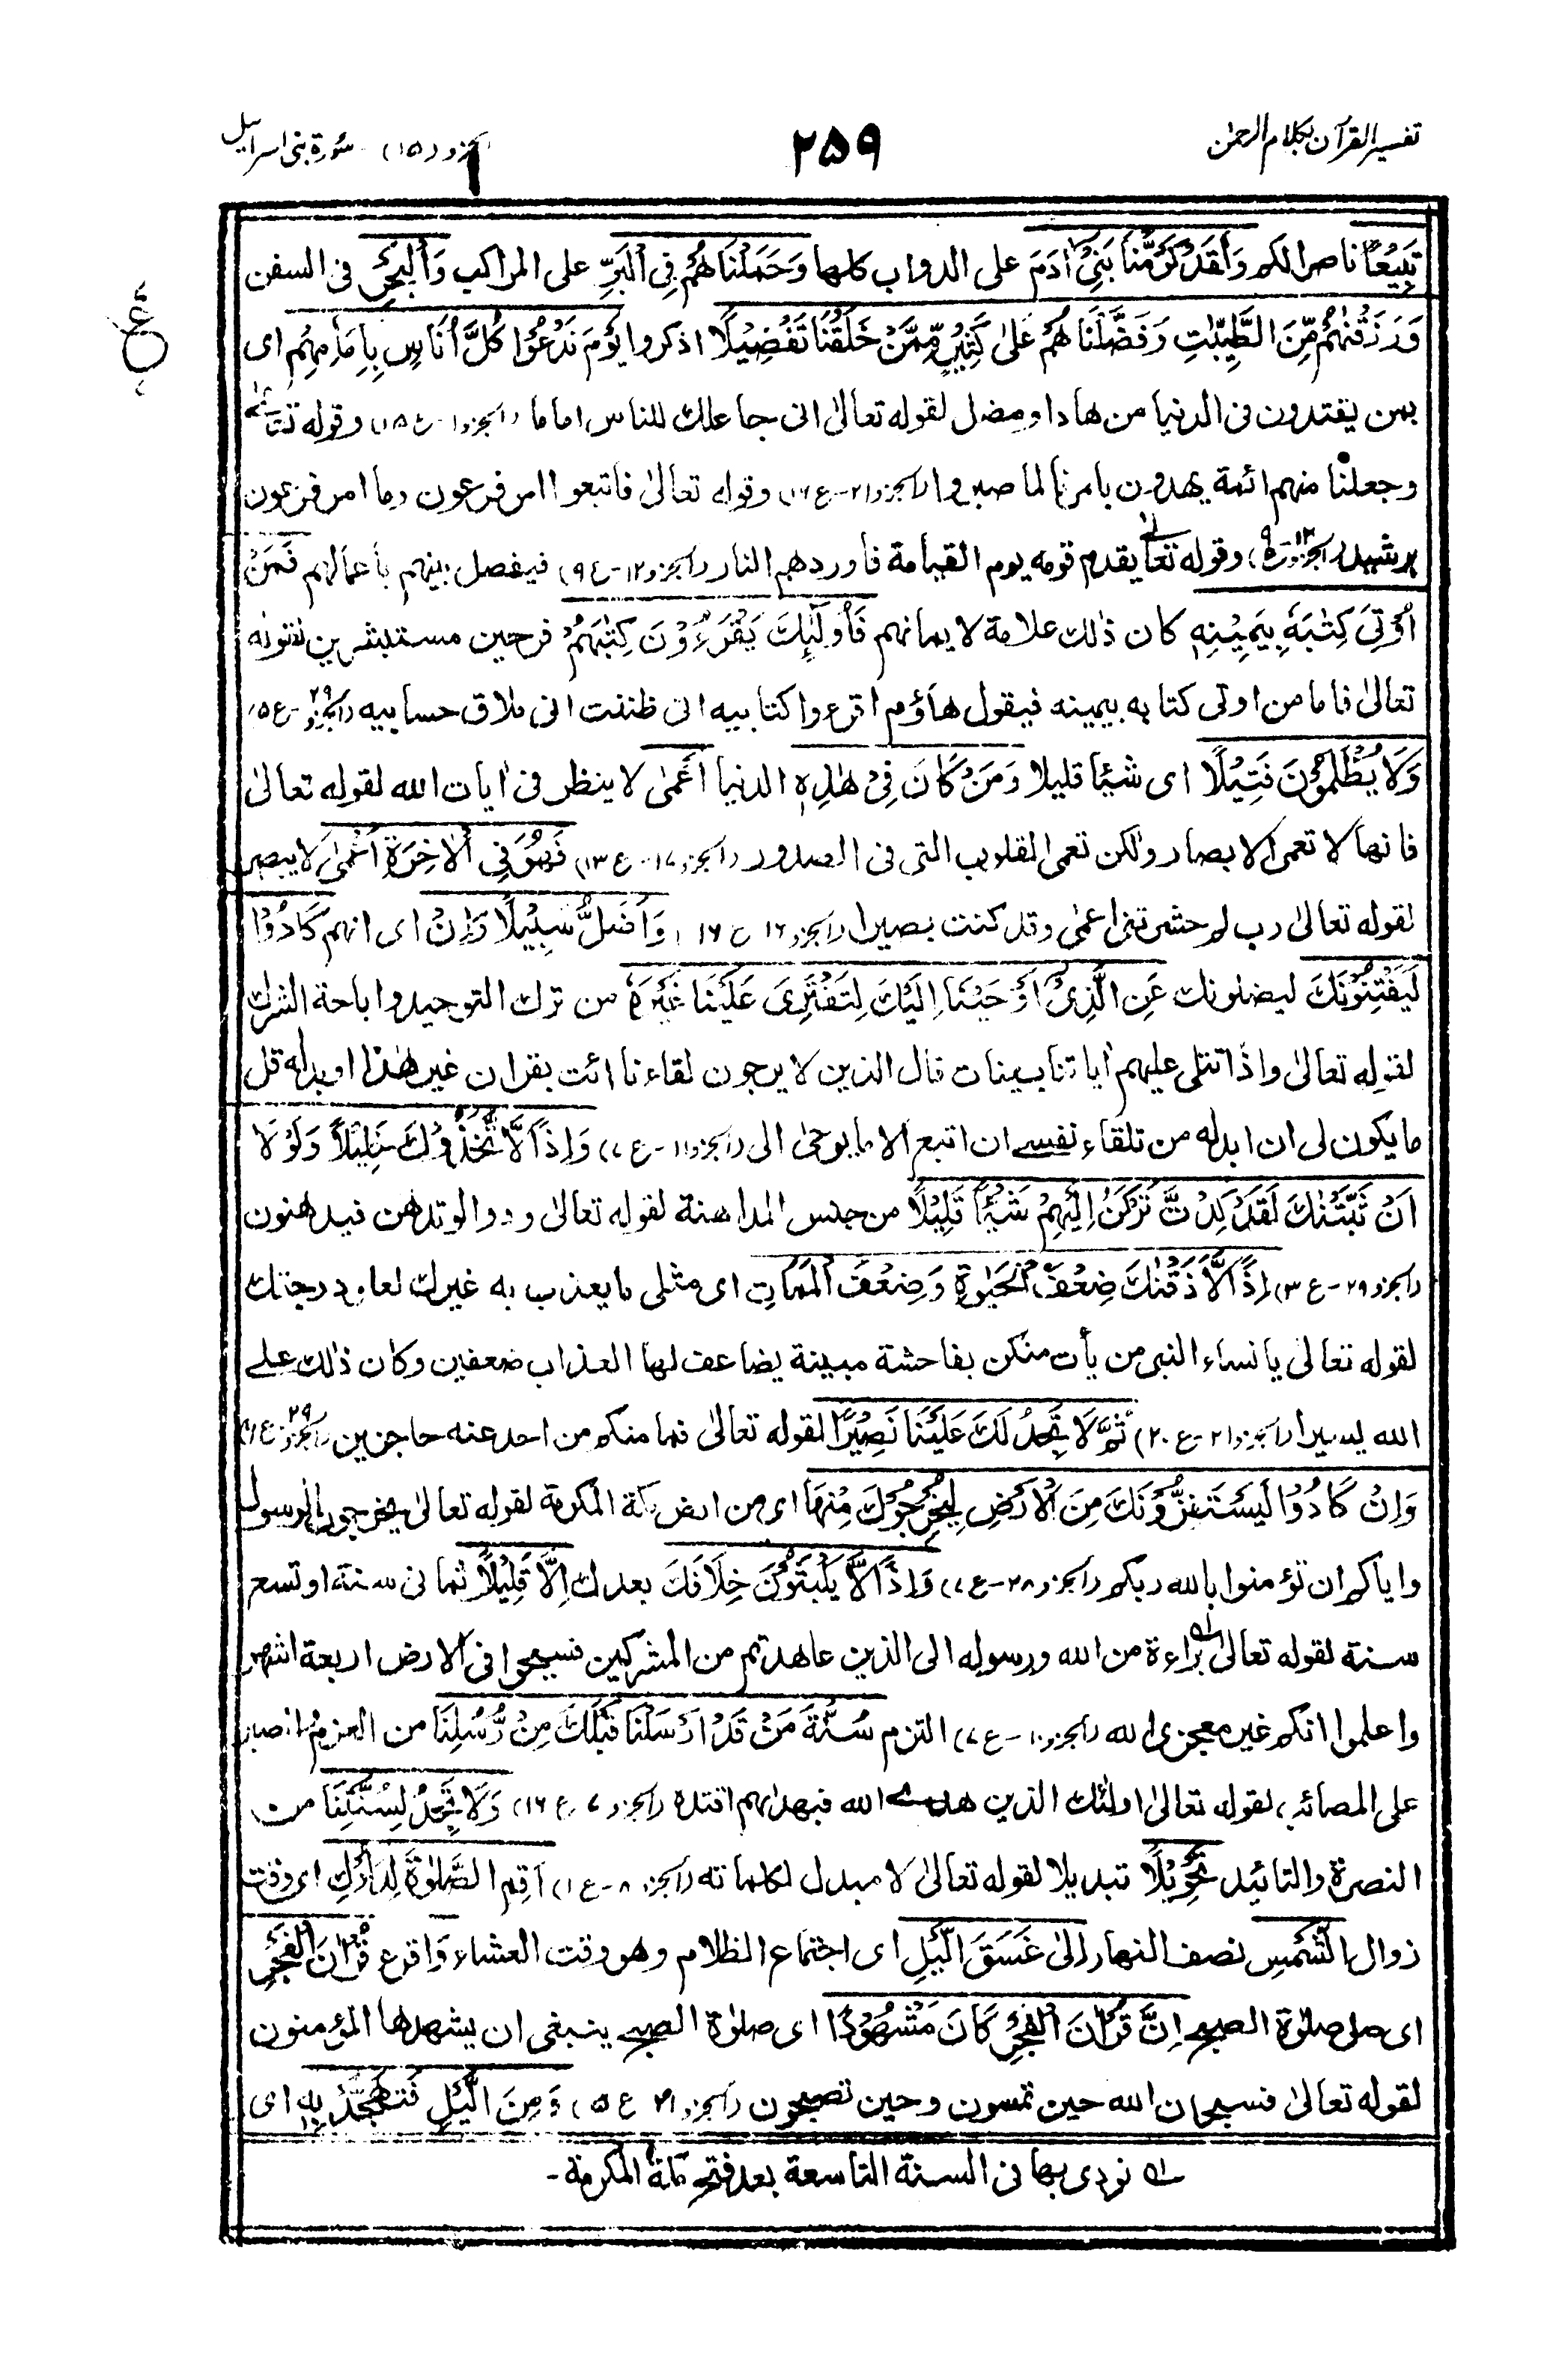 تفسير القرآن بكلام الرحمٰن ۲۵۹ الجزو (۱۵) - سورة بنی اسراءیل
تَبِيْعًا ناصرا لكم وَلَقَدْ كَرَّمْنَا بَنِيْۤ اٰدَمَ على الدواب كلها وَحَمَلْنَاهُمْ فِي الْبَرِّ على المراكب وَالْبَحْرِ فى السفن
وَرَزَقْنٰهُمْ مِّنَ الطَّيِّبٰتِ وَفَضَّلْنَاهُمْ عَلٰى كَثِيْرٍ مِّمَّنْ خَلَقْنَا تَفْضِيْلًا اذكروا يَوْمَ نَدْعُوْا كُلَّ اُنَاسٍ بِاِمَامِهِمْ اى
بمن يقتدون فى الدنيا من هاد او مضل لقوله تعالىٰ انى جاعلك للناس اماما (الجزو ۱ - ع ۱۵) وقوله تعالىٰ
وجعلنا منهم ائمة يهدون بامرنا لما صبروا (الجزو ۲۱ - ع ۱۶) وقوله تعالىٰ فاتبعوا امر فرعون وما امر فرعون
برشيد (الجزو ۱۲ - ع ۹) وقوله تعالىٰ يقدم قومه يوم القيامة فاوردهم النار (الجزو ۱۲ - ع ۹) فيفصل بينهم باعمالهم فَمَنْ
اُوْتِيَ كِتٰبَهٗ بِيَمِيْنِهٖ كان ذٰلك علامة لايمانهم فَاُولٰٓئِكَ يَقْرَءُوْنَ كِتٰبَهُمْ فرحين مستبشرين لقوله
تعالىٰ فاما من اوتى كتابه بيمينه فيقول هاؤم اقرءوا كتابيه انى ظننت انى ملاق حسابيه (الجزو ۲۹ - ع ۵)
وَلَا يُظْلَمُوْنَ فَتِيْلًا اى شيئا قليلا وَمَنْ كَانَ فِيْ هٰذِهٖ الدنيا اَعْمٰى لا ينظر فى اٰيات الله لقوله تعالىٰ
فانها لا تعمى الابصار ولٰكن تعمى القلوب التى فى الصدور (الجزو ۱۷ - ع ۱۳) فَهُوَ فِي الْاٰخِرَةِ اَعْمٰى لا يبصر
لقوله تعالىٰ رب لم حشرتنى اعمى وقد كنت بصيرا (الجزو ۱۶ ع ۱۶) وَاَضَلُّ سَبِيْلًا وَاِنْ اى انهم كَادُوْا
لَيَفْتِنُوْنَكَ ليضلونك عَنِ الَّذِيْۤ اَوْحَيْنَاۤ اِلَيْكَ لِتَفْتَرِيَ عَلَيْنَا غَيْرَهٗ من ترك التوحيد واباحة الشرك
لقوله تعالىٰ واذا تتلى عليهم اٰياتنا بينات قال الذين لا يرجون لقاءنا ائت بقراٰن غير هٰذا او بدله قل
ما يكون لى ان ابدله من تلقاء نفسے ان اتبع الا ما يوحىٰ الى (الجزو ۱۱ - ع ۷) وَاِذًا لَّاتَّخَذُوْكَ خَلِيْلًا وَلَوْلَا
اَنْ ثَبَّتْنٰكَ لَقَدْ كِدْتَّ تَرْكَنُ اِلَيْهِمْ شَيْئًا قَلِيْلًا من جنس المداهنة لقوله تعالىٰ ودوا لو تدهن فيدهنون
(الجزو ۲۹ - ع ۳) اِذًا لَّاَذَقْنٰكَ ضِعْفَ الْحَيٰوةِ وَضِعْفَ الْمَمَاتِ اى مثلى ما يعذب به غيرك لعلو درجتك
لقوله تعالىٰ يا نساء النبى من يأت منكن بفاحشة مبينة يضاعف لها العذاب ضعفين وكان ذٰلك علے
الله يسيرا (الجزو ۲۱ - ع ۲۰) ثُمَّ لَا تَجِدُ لَكَ عَلَيْنَا نَصِيْرًا لقوله تعالىٰ فما منكم من احد عنه حاجزين (الجزو ۲۹ - ع ۶)
وَاِنْ كَادُوْا لَيَسْتَفِزُّوْنَكَ مِنَ الْاَرْضِ لِيُخْرِجُوْكَ مِنْهَا اى من ارض مكة المكرمة لقوله تعالىٰ يخرجون الرسول
واياكم ان تؤمنوا بالله ربكم (الجزو ۲۸ - ع ۷) وَاِذًا لَّا يَلْبَثُوْنَ خِلَافَكَ بعدك اِلَّا قَلِيْلًا ثمانى سنة او تسع
سنة لقوله تعالىٰ براءة من الله ورسوله الى الذين عاهدتم من المشركين فسيحوا فى الارض اربعة اشهر
واعلموا انكم غير معجزى الله (الجزو ۱۰ - ع ۷) التزم سُنَّةَ مَنْ قَدْ اَرْسَلْنَا قَبْلَكَ مِنْ رُّسُلِنَا من العزم والصبر
على المصائب لقوله تعالىٰ اولئك الذين هدے الله فبهداهم اقتده (الجزو ۷ - ع ۱۶) وَلَا تَجِدُ لِسُنَّتِنَا من
النصرة والتائيد تَحْوِيْلًا تبديلا لقوله تعالىٰ لا مبدل لكلماته (الجزو ۸ - ع ۱) اَقِمِ الصَّلٰوةَ لِدُلُوْكِ اى وقت
زوال الشَّمْسِ نصف النهار اِلىٰ غَسَقِ الَّيْلِ اى اجتماع الظلام وهو وقت العشاء وَاقرء قُرْاٰنَ الْفَجْرِ
اى صل صلٰوة الصبح اِنَّ قُرْاٰنَ الْفَجْرِ كَانَ مَشْهُوْدًا اى صلٰوة الصبح ينبغى ان يشهدها المؤمنون
لقوله تعالىٰ فسبحان الله حين تمسون وحين تصبحون (الجزو ۲۱ ع ۵) وَمِنَ الَّيْلِ فَتَهَجَّدْ بِهٖ اى
لہ نودى بها فى السنة التاسعة بعد فتح مكة المكرمة -